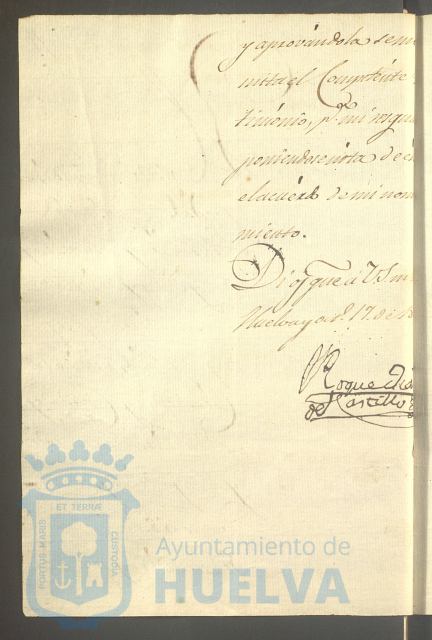 y aprovándola se me
mita el Competente
timónio, pª. mi resgu
poniendose nota de é
el acuérdo de mi nom
miento.
Dios gue á V.S. m
Huelva y 17. de
Roque
de Castillo
ET TERRÆ
PORTUS MARIS
CUSTODIA
Ayuntamiento de
HUELVA